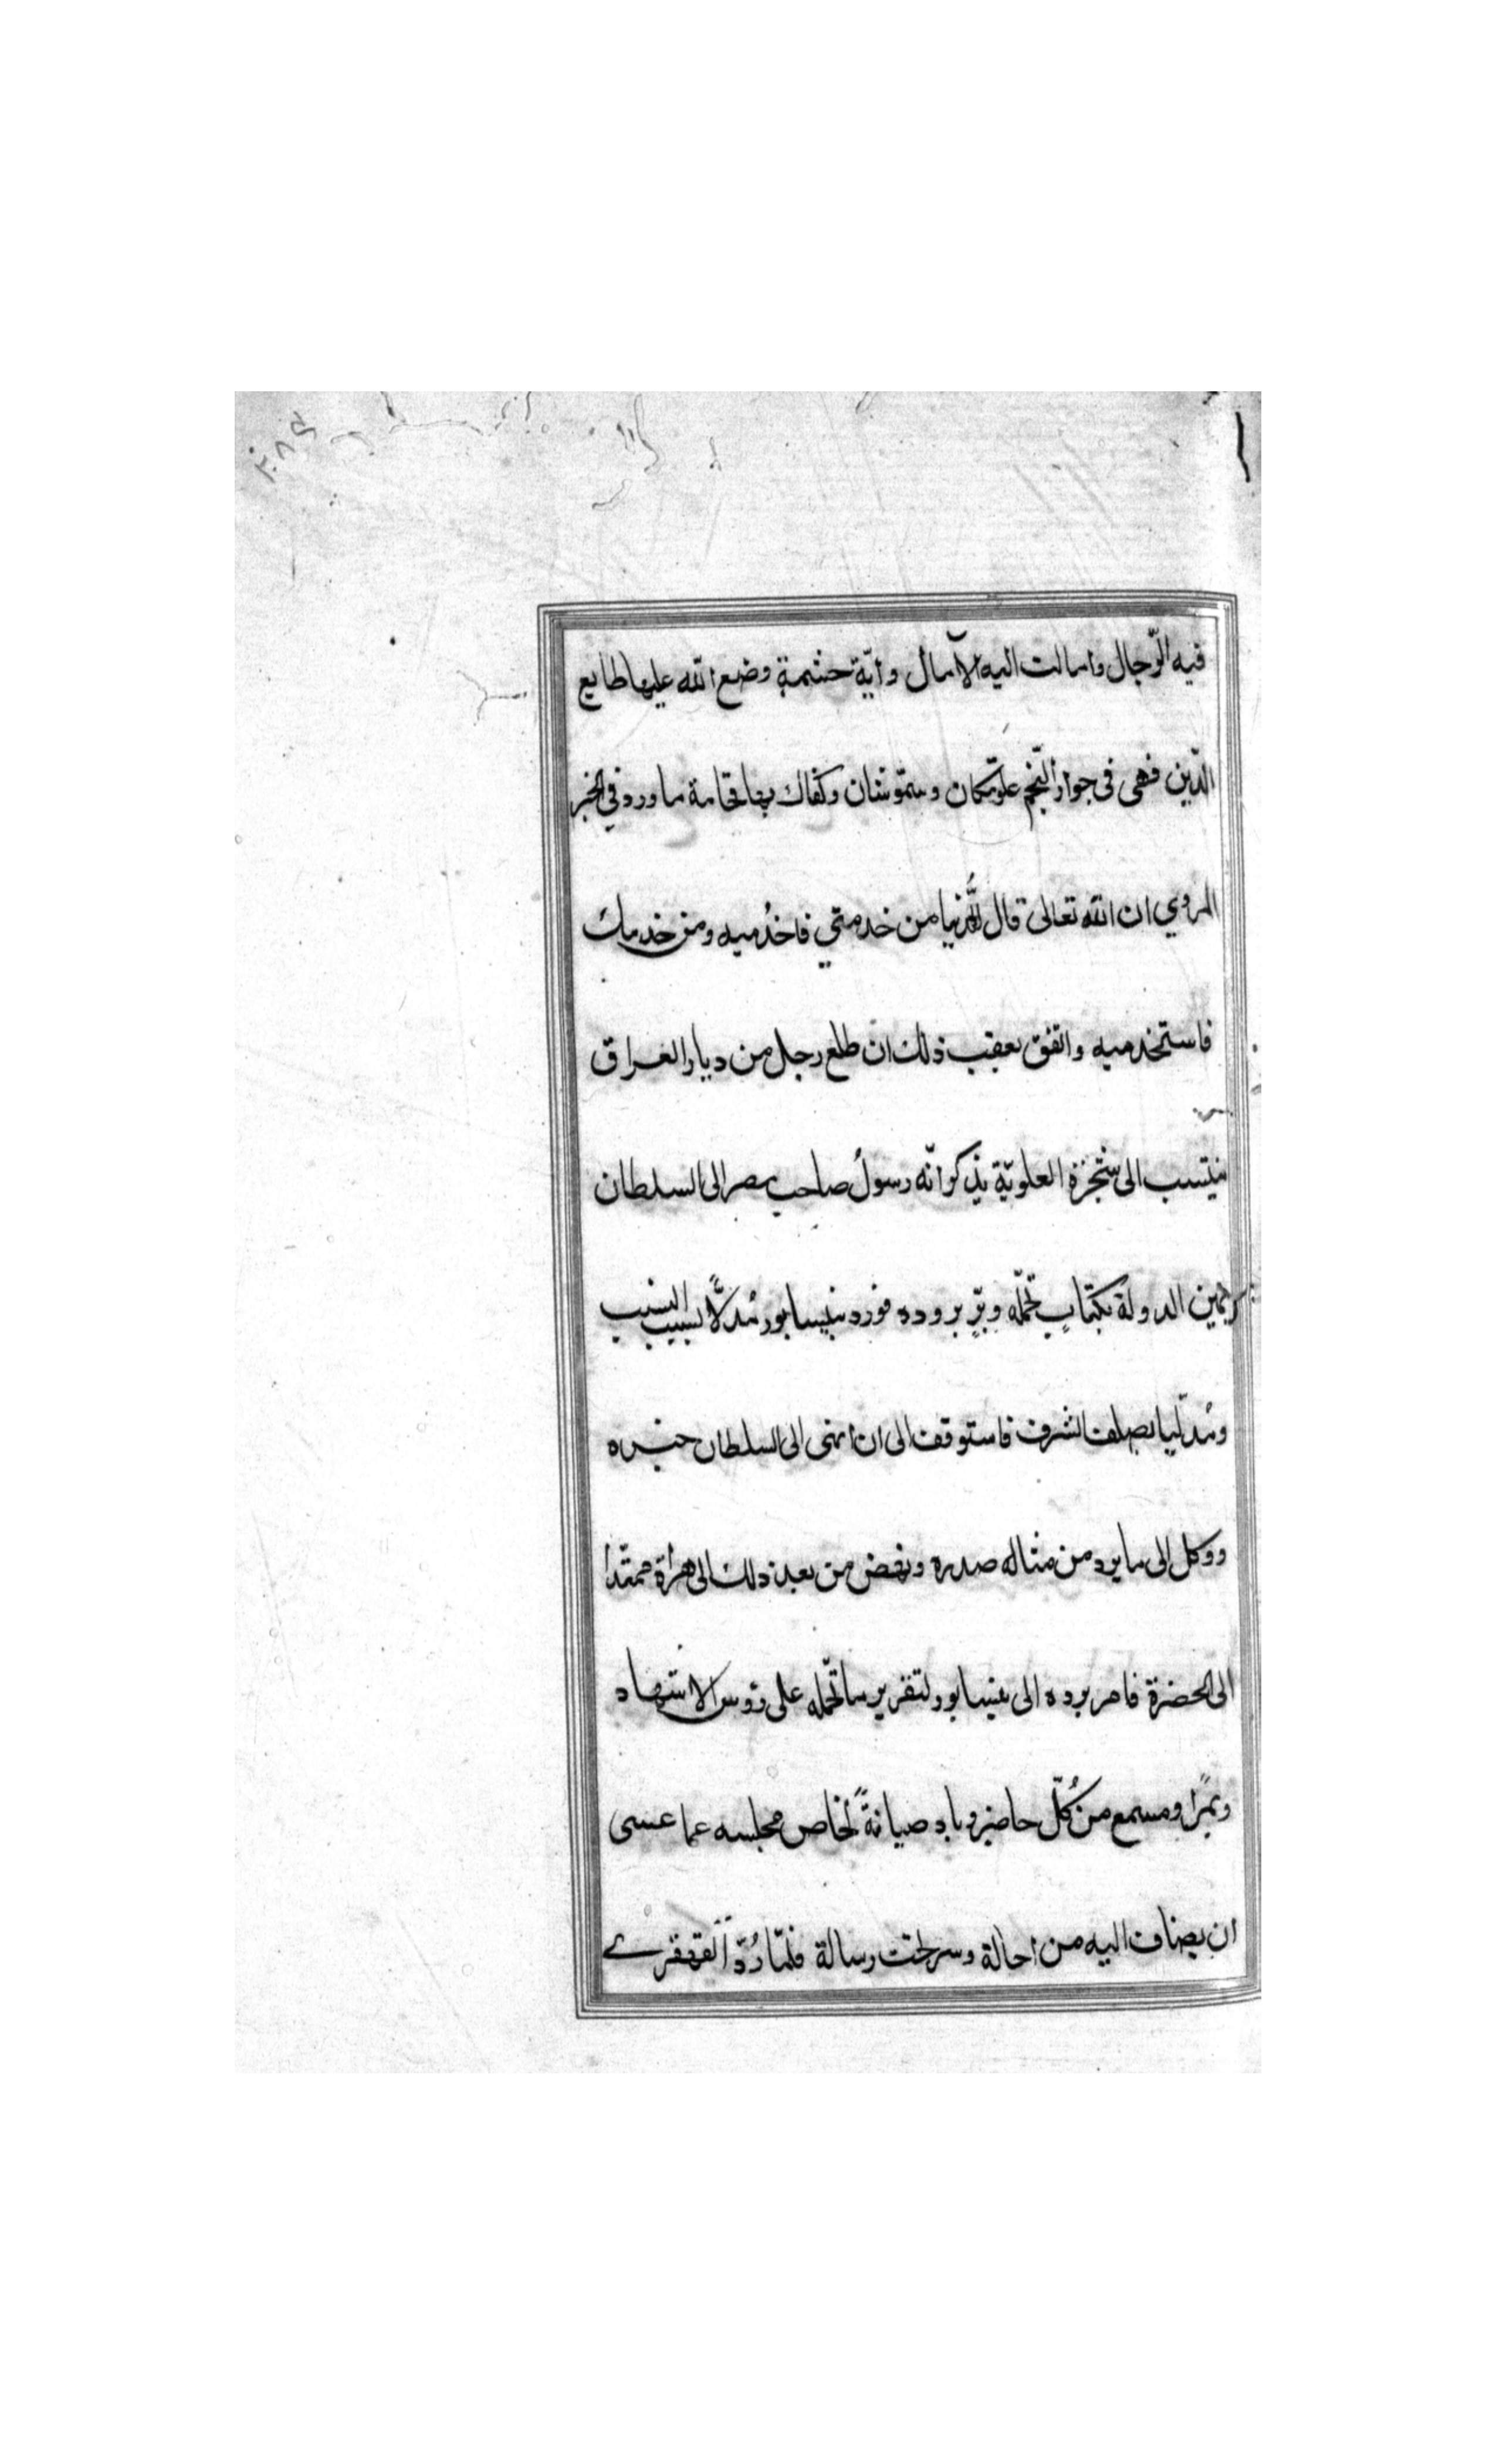 ٣٠٨٤
فيه الرّجال واسالت اليه الآمال وايّة حشمةٍ وضع الله عليها طابع
الدّين فهى فى جوار النّجم علوّمكان وسموّشان وكفاك بها فخامة ما ورد في الخبر
المروي ان الله تعالى قال للدُّنيا من خدمتي فاخدُميه ومن خدمك
فاستخدميه واتفق بعقب ذلك ان طلع رجل من ديار العراق
ينتسب الى شجرة العلويّة يذكر انّه رسولُ صاحب مصر الى السلطان
يمين الدولة بكتابٍ تحمّله وبرٍّ بروده فورد نيسابور مُدلًّا بسبب النسب
ومُدلّيا بصلف الشرف فاستوقف الى ان انهى الى السلطان خبره
ووكل الى ما يرد من مثاله صدره ونهض من بعد ذلك الى هراة ممتدا
الى الحضرة فامر برده الى نيسابور لتقرير ما تحمّله على رؤس الاشهاد
وبمرًا ومسمع من كُلّ حاضر وباد صيانةً لخاص مجلسه عما عسى
ان يضاف اليه من احالة وسرحت رسالة فلمّا رُدّ القهقرے